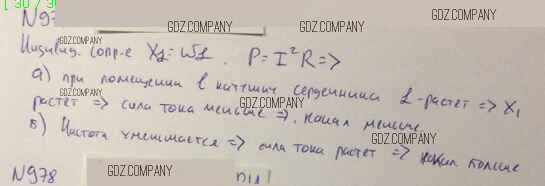 [ 30 / 3
N97
GDZ.COMPANY
GDZ.COMPANY
GDZ.COMPANY
Индивид. сопр-е X_L = WL. P = I²R =>
GDZ.COMPANY
GDZ.COMPANY
GDZ.COMPANY
а) при помещении в катушку сердечника L-растет => X_L
растет => сила тока меньше => накал меньше
GDZ.COMPANY
GDZ.COMPANY
GDZ.COMPANY
б) Частота уменьшается => сила тока растет => накал больше
N978
GDZ.COMPANY